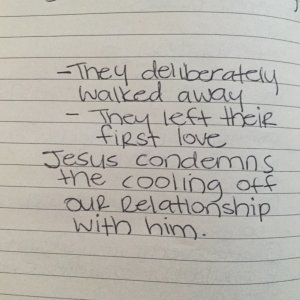 -They deliberately
walked away
- They left their
first love
Jesus condemns
the cooling off
our relationship
with him.